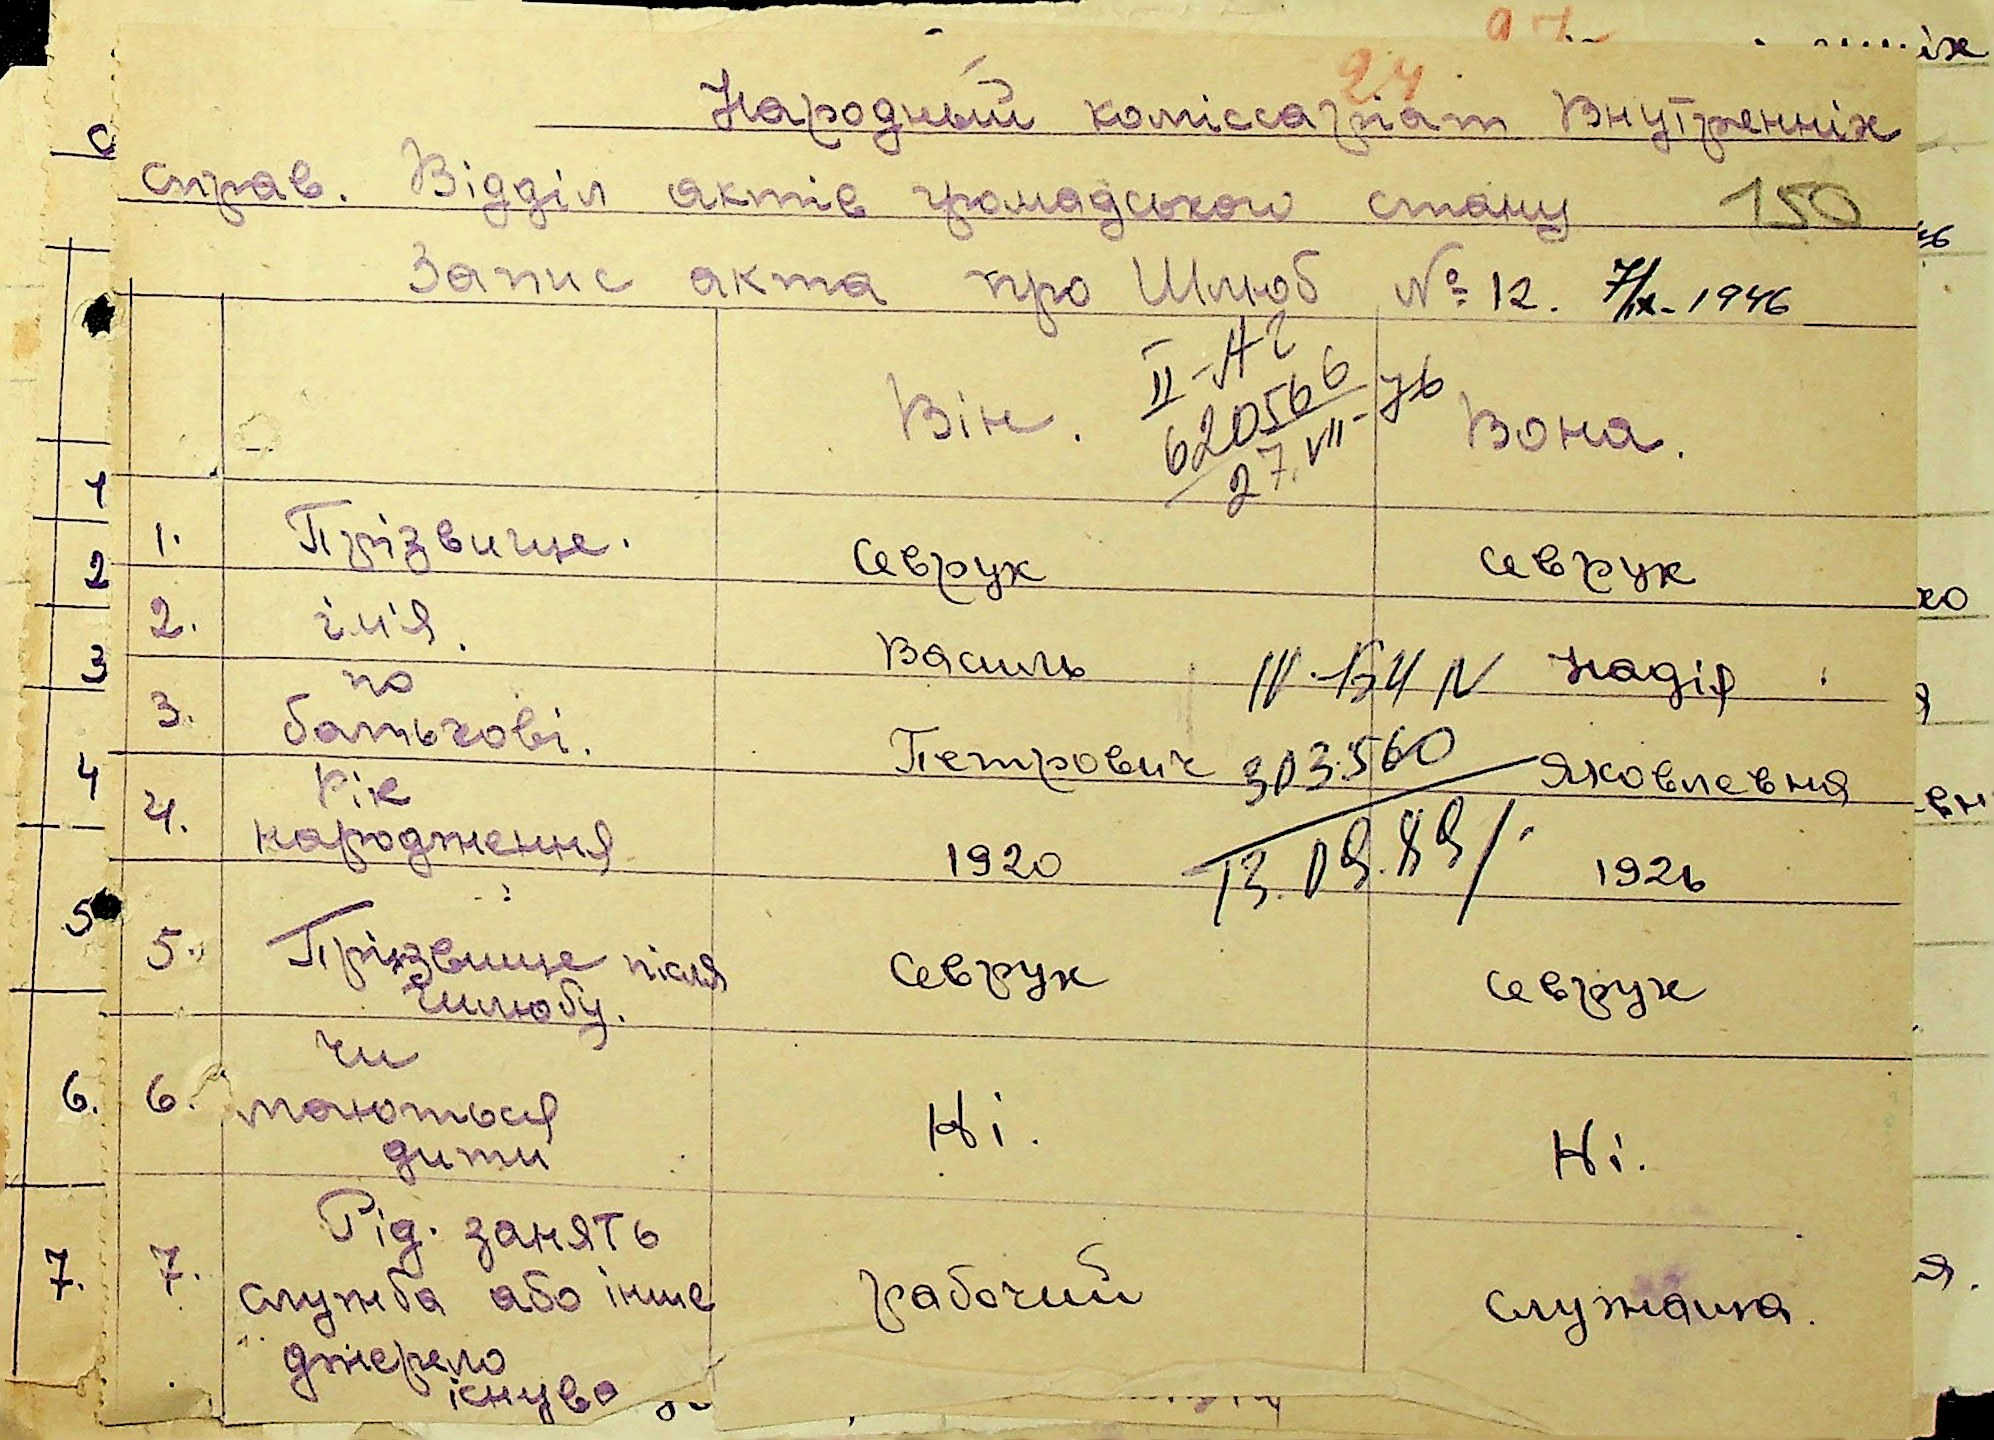 24
Народный коміссаріат Внутренніх
справ. Відділ актів громадського стану 150
Запис акта про Шлюб № 12. 7/IX-1946
Він. Вона.
II-АГ
620566
27.VII-76
1. Прізвище. Севрук Севрук
2. ім'я. Василь Надія
3. по батькові. Петрович Яковлевня
IV-БЛ N
303560
13.09.89
4. Рік народження 1920 1926
5. Прізвище після Севрук Севрук
шлюбу.
6. чи
маються
дити Ні. Ні.
7. Рід. занять
служба або інше рабочий служаща.
джерело
існува
1
2
3
4
5
6.
7.